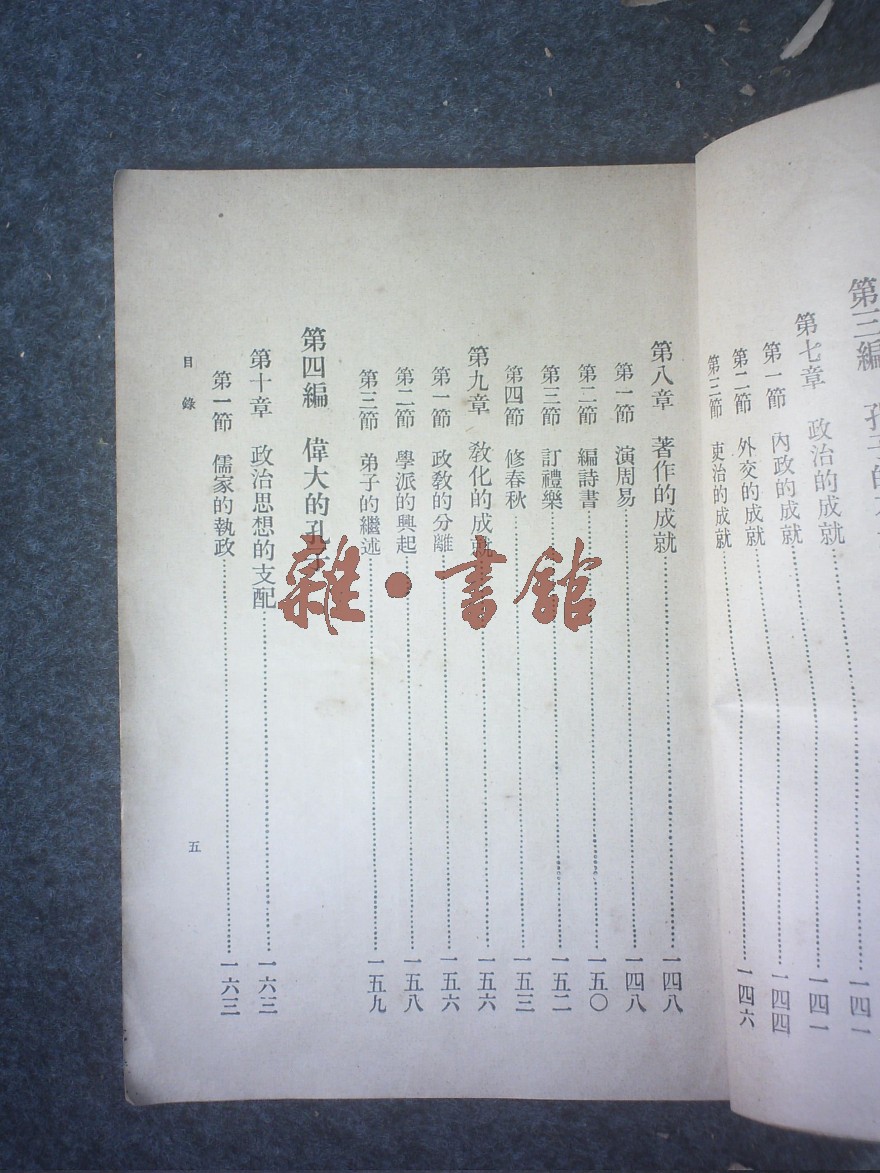 第三編 孔子的
第七章 政治的成就……一四一
第一節 內政的成就……一四一
第二節 外交的成就……一四四
第三節 吏治的成就……一四六
第八章 著作的成就……一四八
第一節 演周易……一四八
第二節 編詩書……一五〇
第三節 訂禮樂……一五二
第四節 修春秋……一五三
第九章 敎化的成就……一五六
第一節 政敎的分離……一五六
第二節 學派的興起……一五八
第三節 弟子的繼述……一五九
第四編 偉大的孔子
第十章 政治思想的支配……一六三
第一節 儒家的執政……一六三
目錄 五
雜·書館